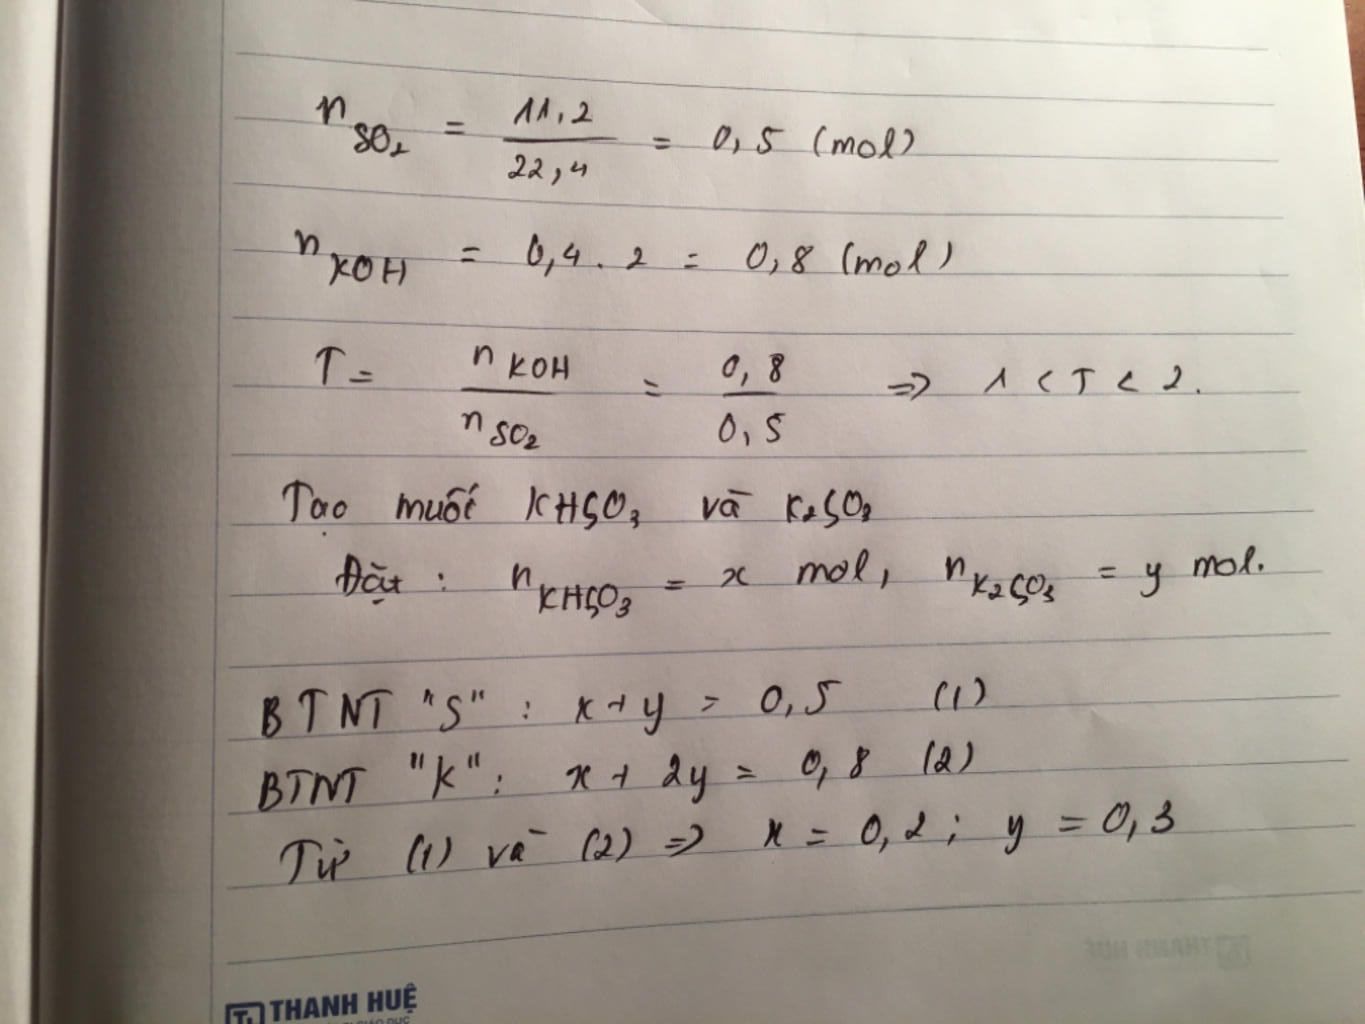 n SO2 = 11,2 / 22,4 = 0,5 (mol)
n KOH = 0,4 . 2 = 0,8 (mol)
T = n KOH / n SO2 = 0,8 / 0,5 => 1 < T < 2.
Tạo muối KHSO3 và K2SO3
Đặt : n KHSO3 = x mol, n K2SO3 = y mol.
BTNT "S" : x + y = 0,5 (1)
BTNT "K" : x + 2y = 0,8 (2)
Từ (1) và (2) => x = 0,2 ; y = 0,3
THANH HUỆ